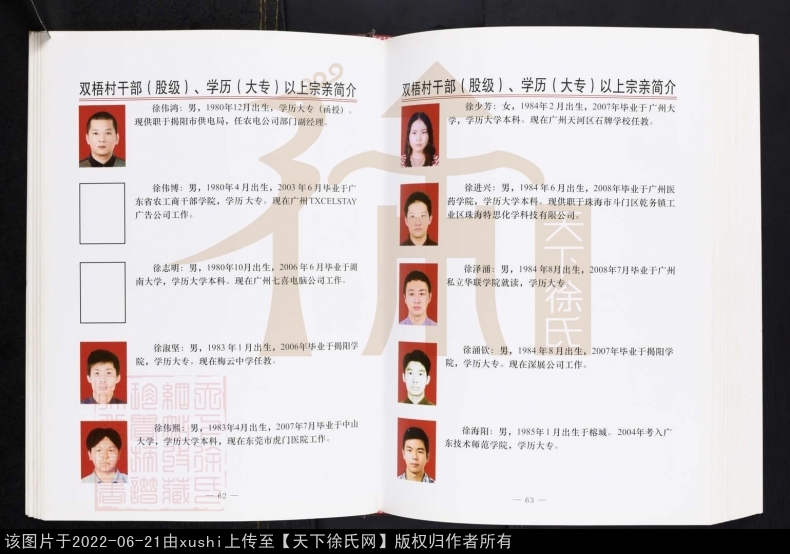 双梧村干部（股级）、学历（大专）以上宗亲简介
徐伟鸿：男，1980年12月出生，学历大专（函授）。
现供职于揭阳市供电局，任农电公司部门副经理。
徐伟博：男，1980年4月出生，2003年6月毕业于广
东省农工商干部学院，学历大专。现在广州TXCELSTAY
广告公司工作。
徐志明：男，1980年10月出生，2006年6月毕业于湖
南大学，学历大学本科。现在广州七喜电脑公司工作。
徐淑坚：男，1983年1月出生，2006年毕业于揭阳学
院，学历大专。现在梅云中学任教。
徐伟熙：男，1983年4月出生，2007年7月毕业于中山
大学，学历大学本科，现在东莞市虎门医院工作。
— 62 —
双梧村干部（股级）、学历（大专）以上宗亲简介
徐少芳：女，1984年2月出生，2007年毕业于广州大
学，学历大学本科。现在广州天河区石牌学校任教。
徐进兴：男，1984年6月出生，2008年毕业于广州医
药学院，学历大学本科。现供职于珠海市斗门区乾务镇工
业区珠海特思化学科技有限公司。
徐泽涌：男，1984年8月出生，2008年7月毕业于广州
私立华联学院就读，学历大专。
徐涌钦：男，1984年8月出生，2007年毕业于揭阳学
院，学历大专。现在深展公司工作。
徐海阳：男，1985年1月出生于榕城。2004年考入广
东技术师范学院，学历大专。
— 63 —
徐
009
天下徐氏
该图片于2022-06-21由xushi上传至【天下徐氏网】版权归作者所有